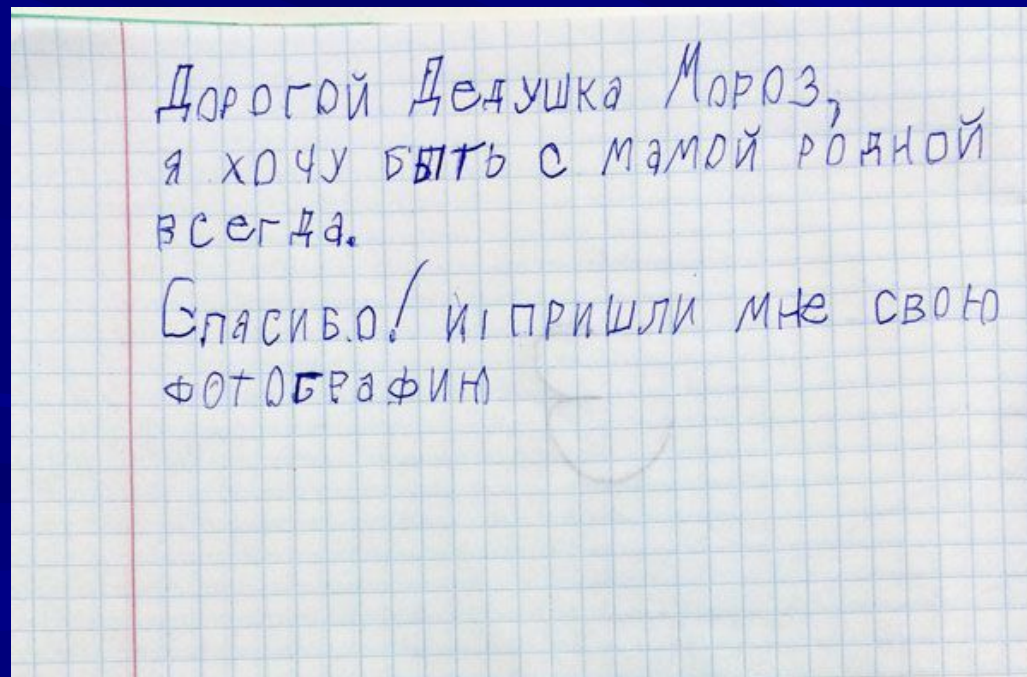 Дорогой Дедушка Мороз,
я хочу быть с мамой родной
всегда.
Спасибо! и пришли мне свою
фотографию